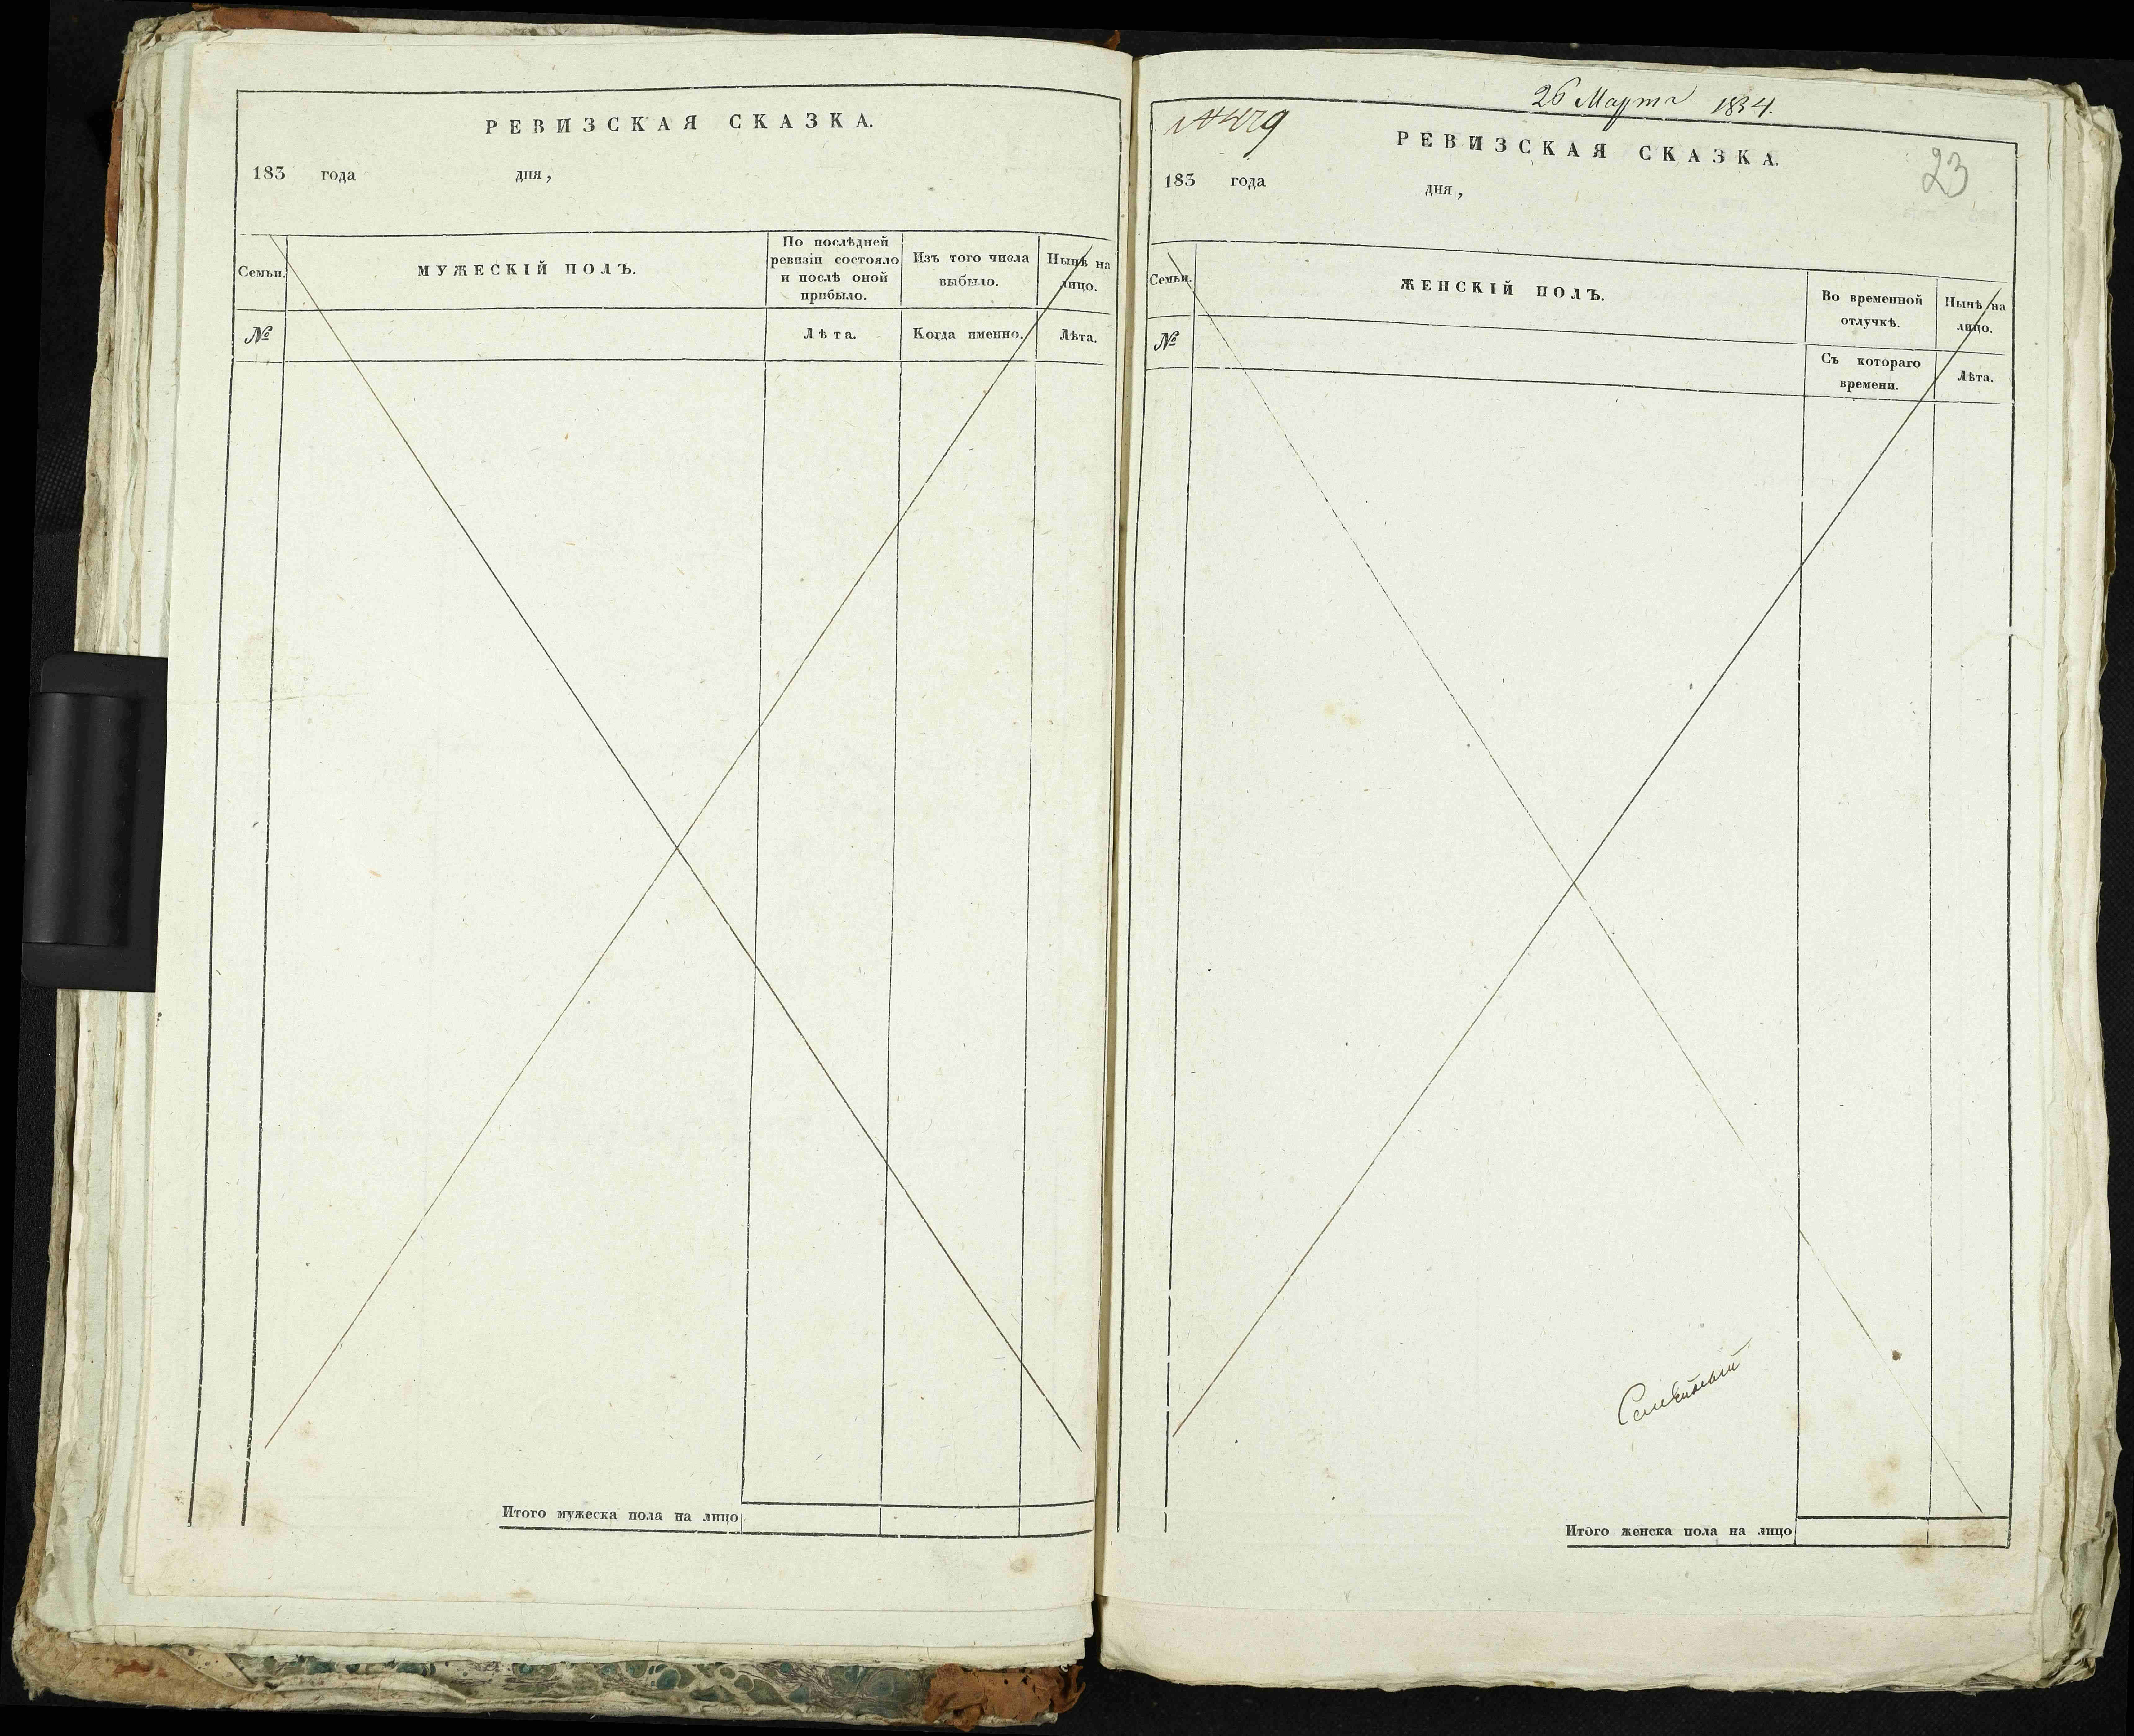 РЕВИЗСКАЯ СКАЗКА.
183 года дня,
Семьи.
МУЖЕСКІЙ ПОЛЪ.
По послѣдней
ревизіи состояло
и послѣ оной
прибыло.
Изъ того числа
выбыло.
Нынѣ на
лицо.
№
Лѣта.
Когда именно.
Лѣта.
Итого мужеска пола на лицо
26 Марта 1834.
РЕВИЗСКАЯ СКАЗКА.
23
183 года дня,
Семьи.
ЖЕНСКІЙ ПОЛЪ.
Во временной
отлучкѣ.
Нынѣ на
лицо.
№
Съ котораго
времени.
Лѣта.
Итого женска пола на лицо